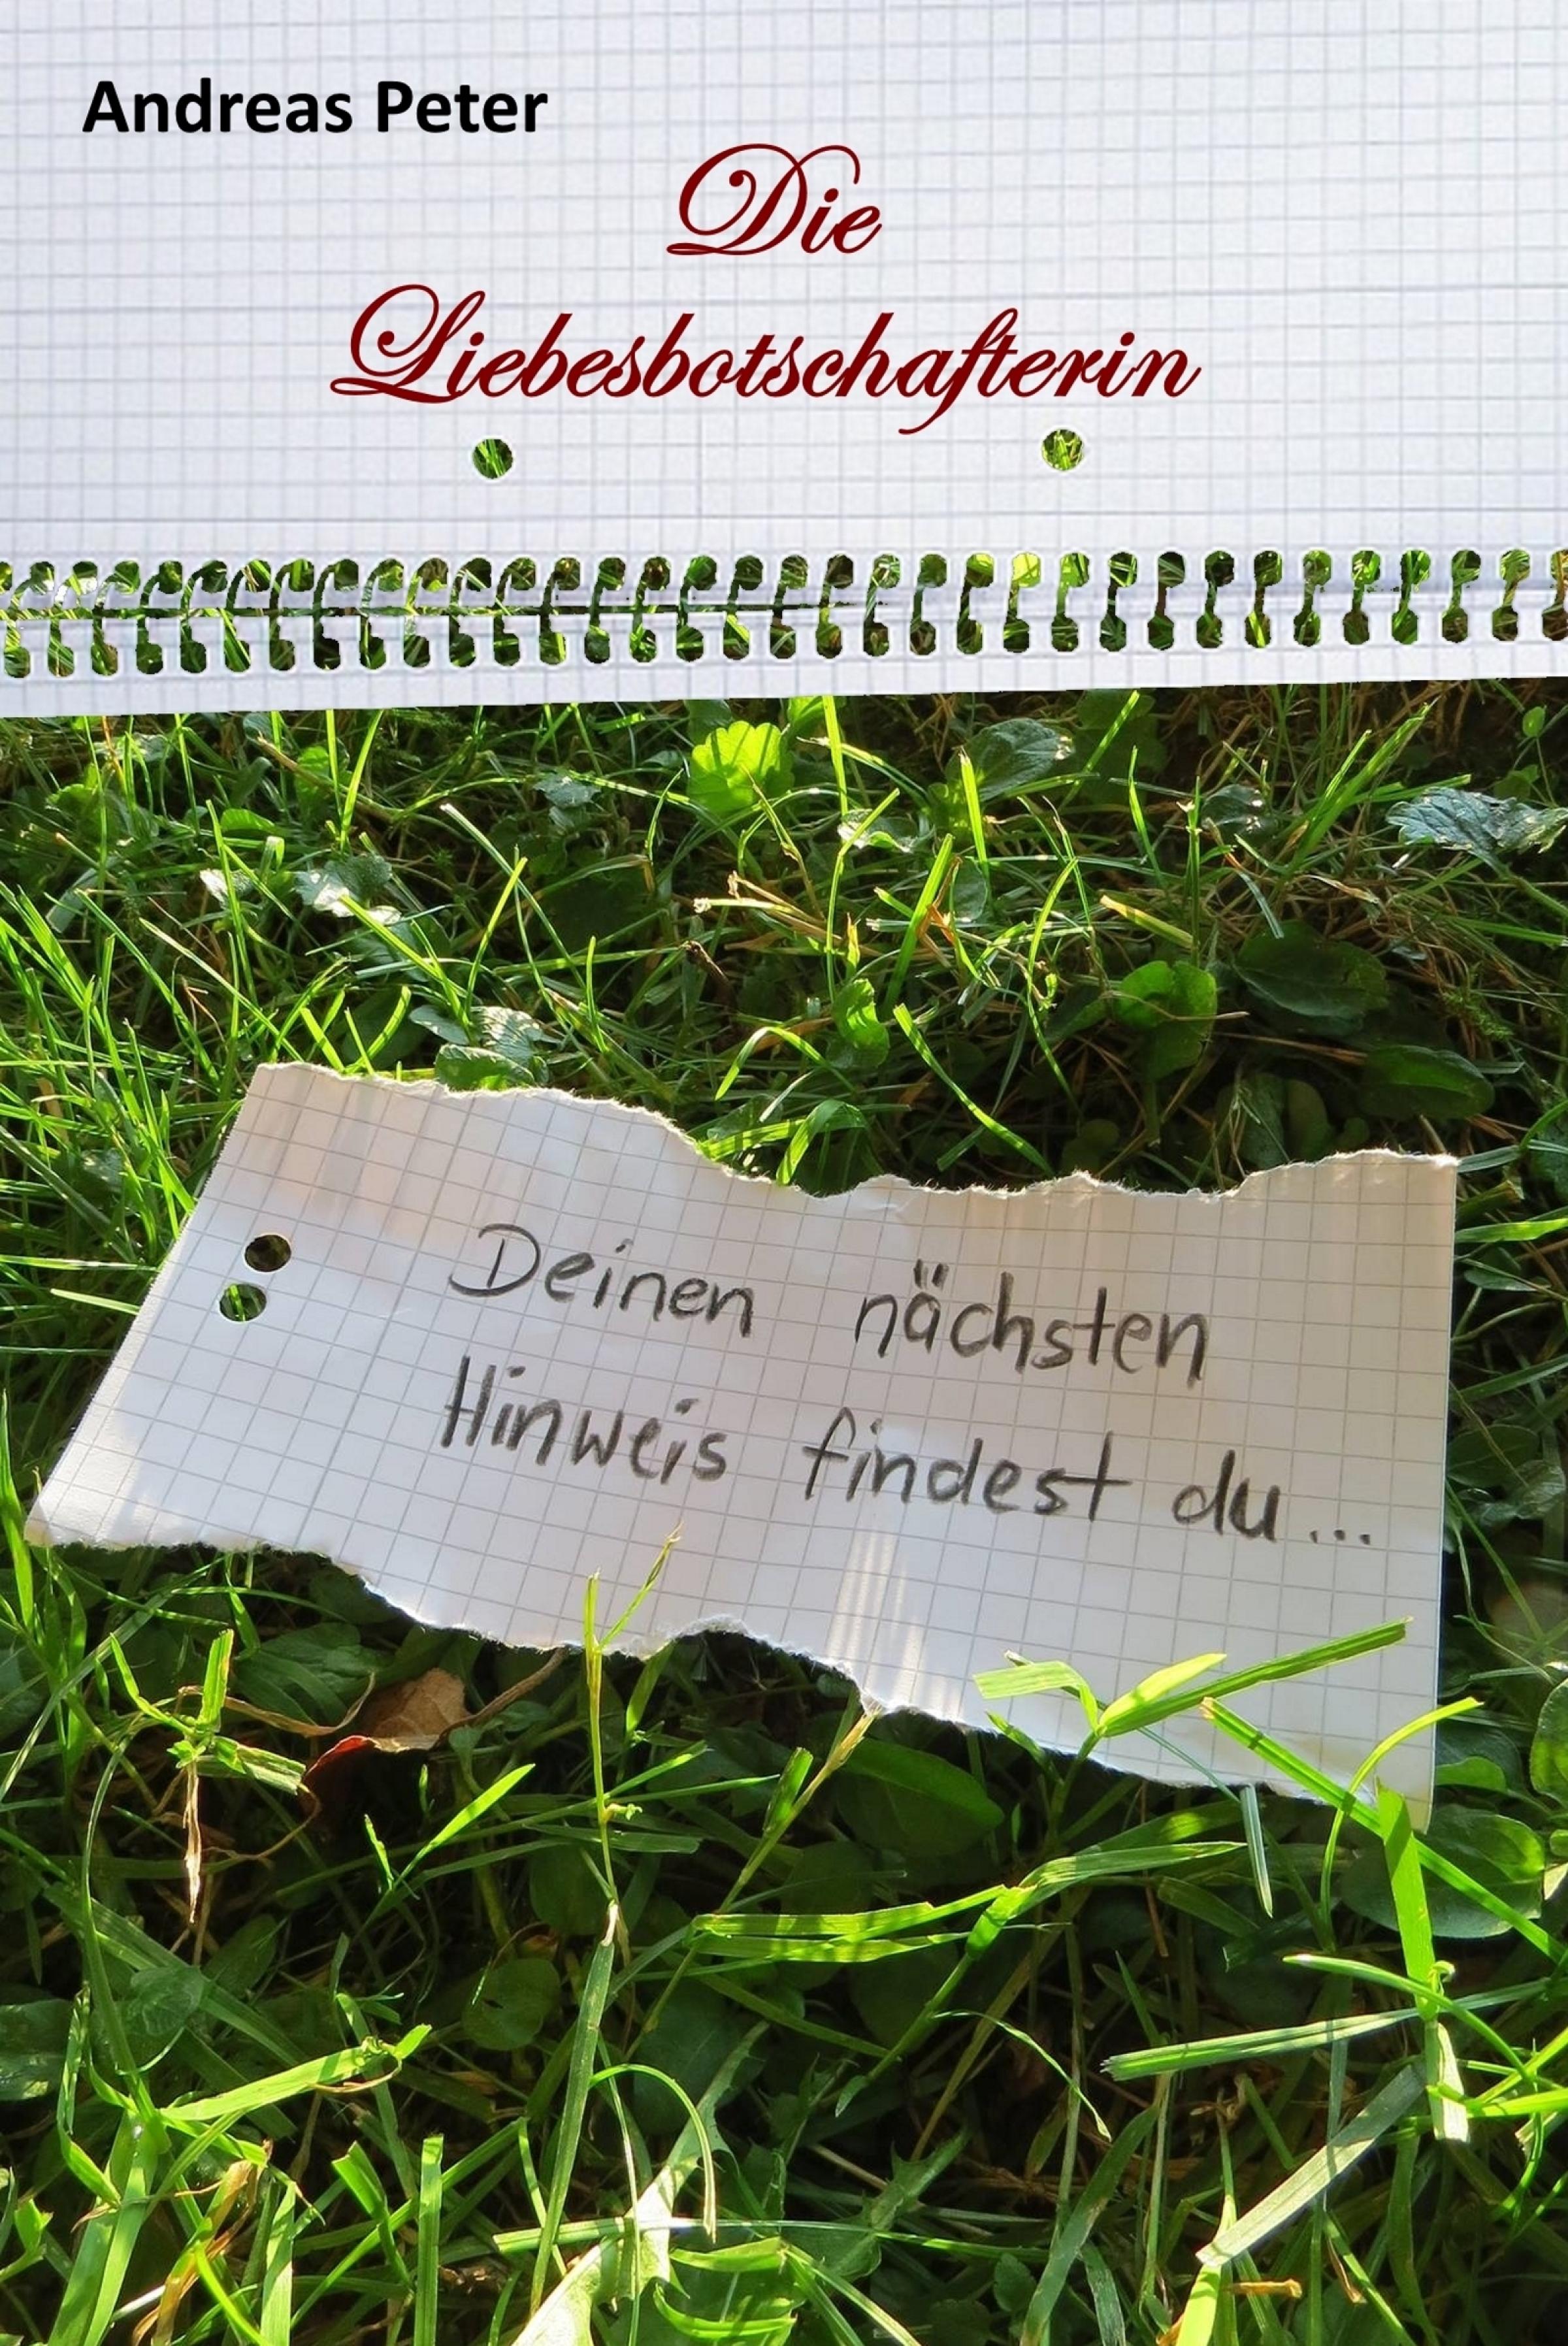 Andreas Peter
Die
Liebesbotschafterin
Deinen nächsten
Hinweis findest du...